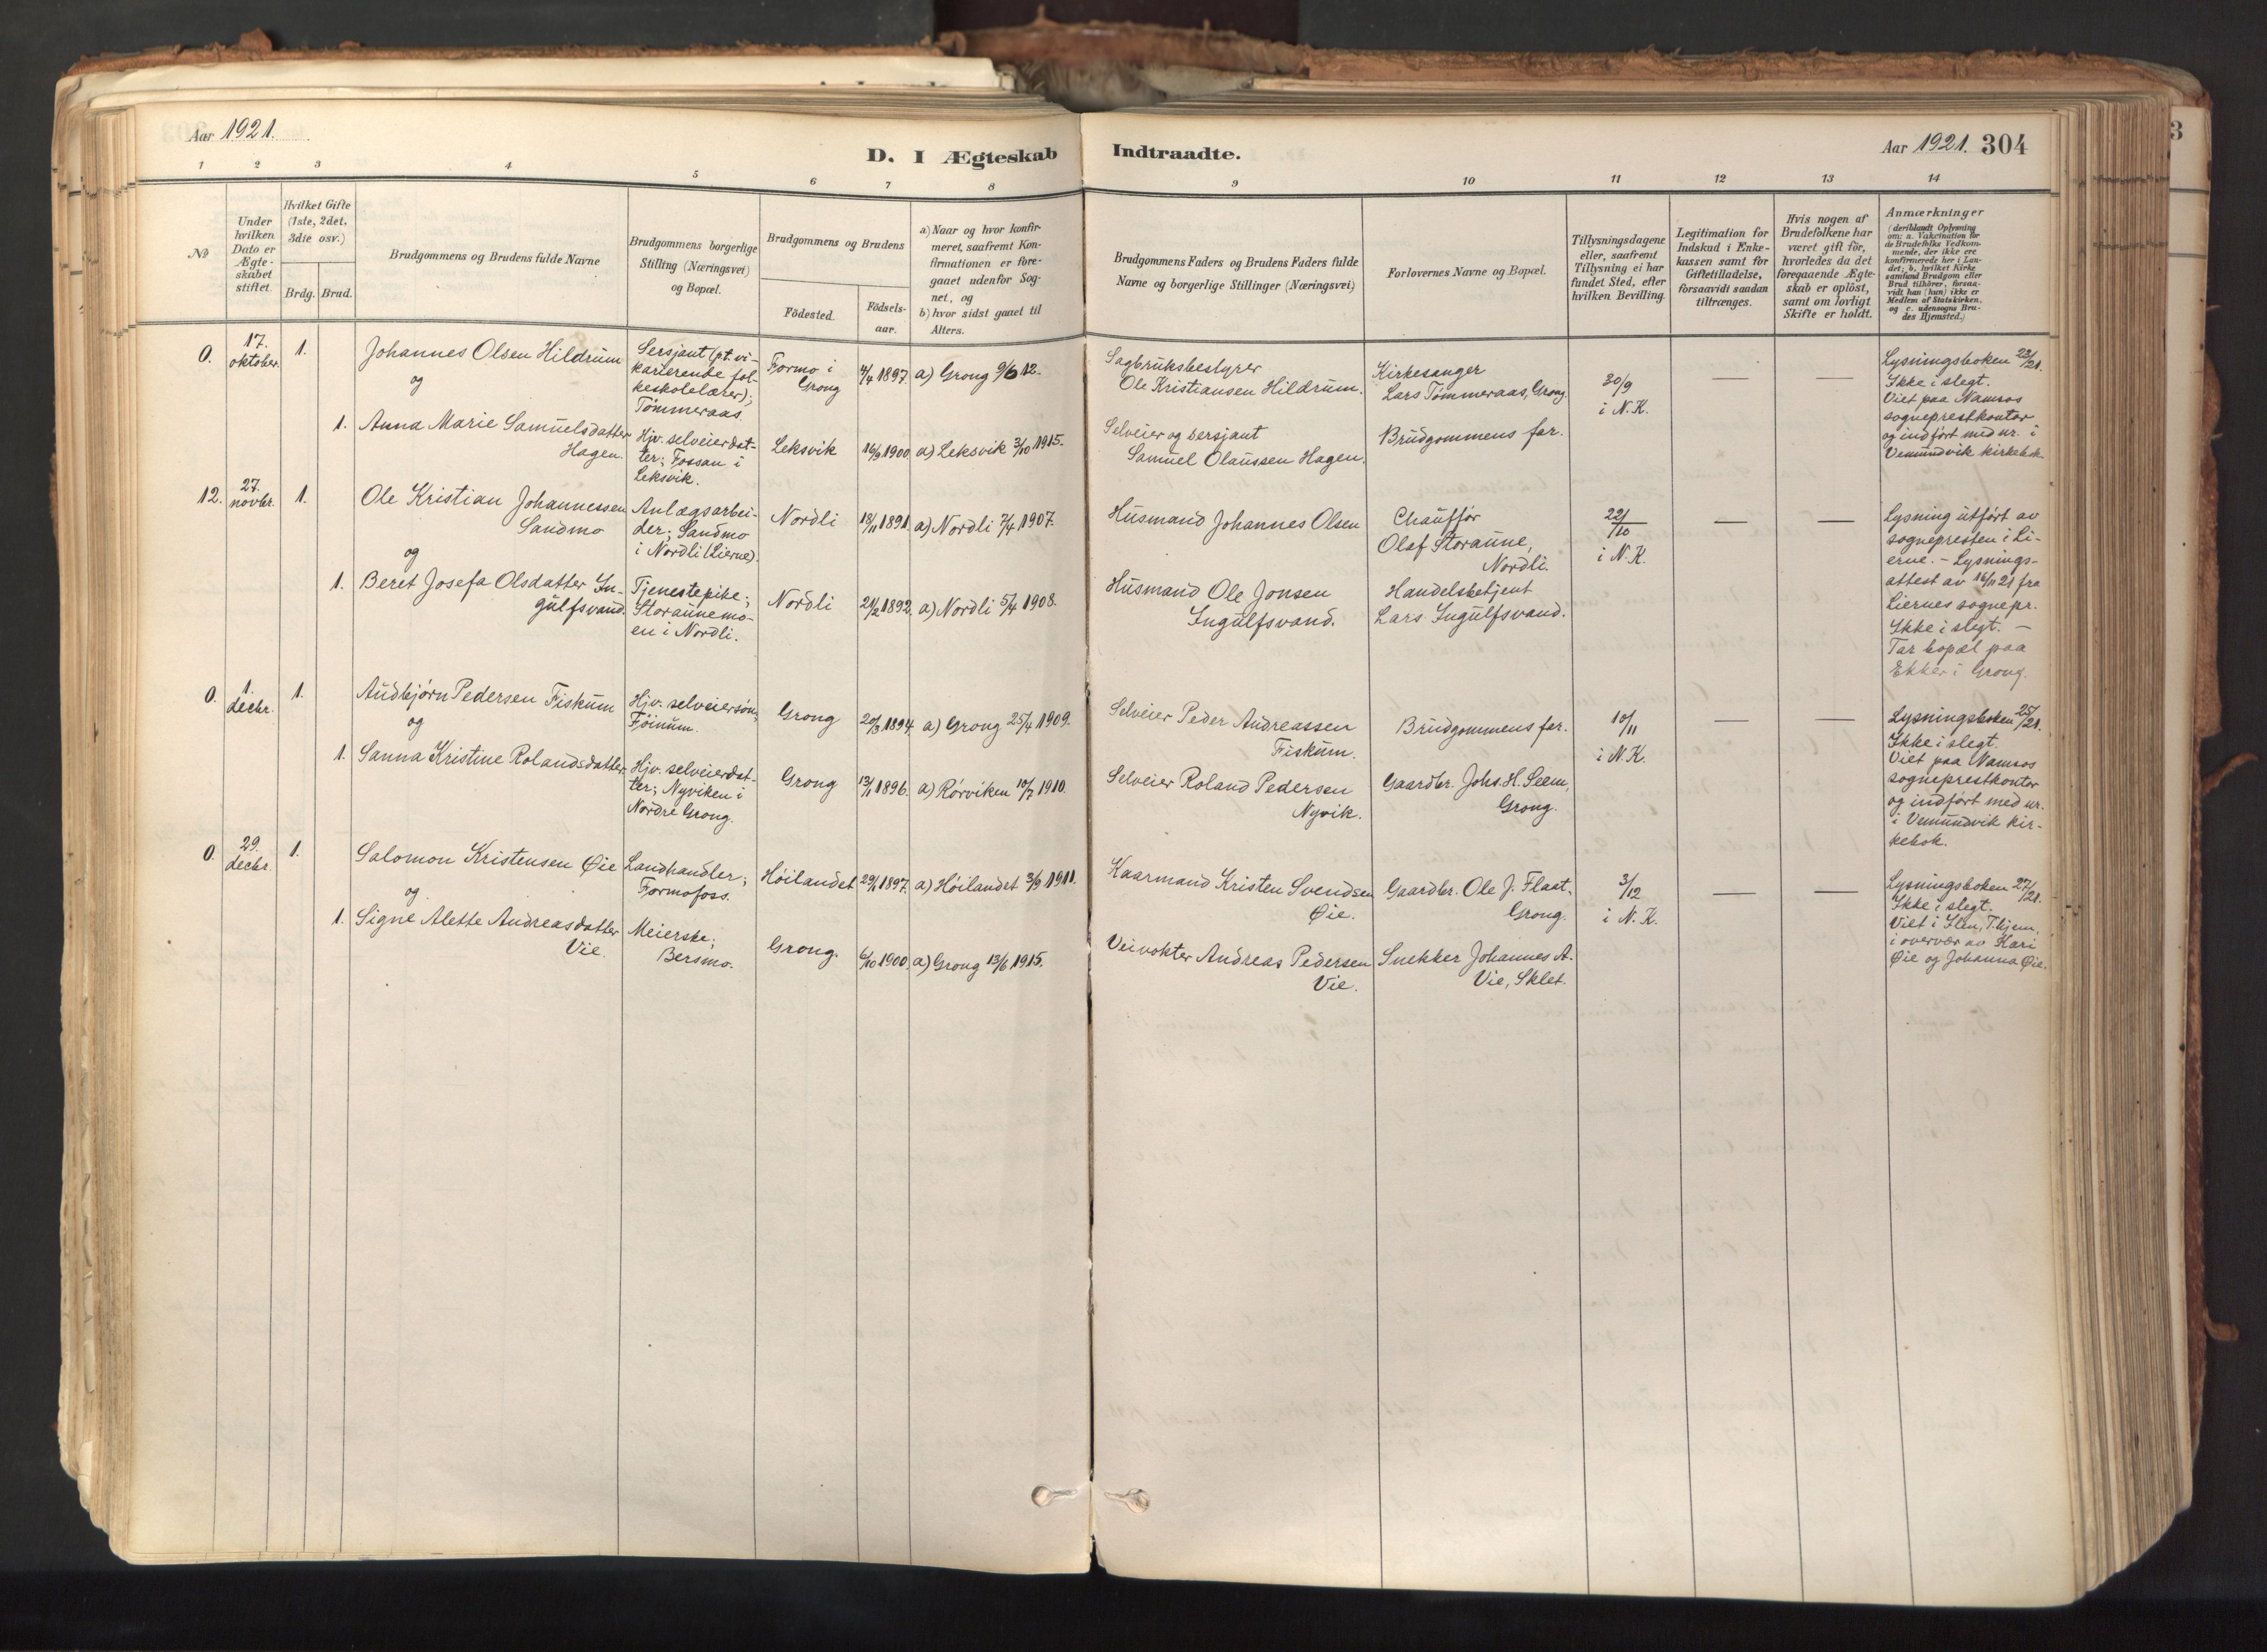 Aar 1921.
D. I Ægteskab
Indtraadte.
Aar 1921. 304
1 2 3 4 5 6 7 8 9 10 11 12 13 14
No
Under hvilken Dato er Ægteskabet stiftet.
Hvilket Gifte (1ste, 2det, 3die osv.)
Brdg. Brud.
Brudgommens og Brudens fulde Navne
Brudgommens borgerlige Stilling (Næringsvei) og Bopæl.
Brudgommens og Brudens
Födested.
Födsels-aar.
a) Naar og hvor konfirmeret, saafremt Konfirmationen er foregaaet udenfor Sognet, og
b) hvor sidst gaaet til Alters.
Brudgommens Faders og Brudens Faders fulde Navne og borgerlige Stillinger (Næringsvei)
Forlovernes Navne og Bopæl.
Tillysningsdagene eller, saafremt Tillysning ei har fundet Sted, efter hvilken Bevilling.
Legitimation for Indskud i Enkekassen samt for Giftetilladelse, forsaavidt saadan tiltrænges.
Hvis nogen af Brudefolkene har været gift för, hvorledes da det foregaaende Ægteskab er oplöst, samt om lovligt Skifte er holdt.
Anmærkninger
(deriblandt Oplysning om: a. Vakcination for de Brudefolks Vedkommende, der ikke ere konfirmerede her i Landet; b. hvilket Kirkesamfund Brudgom eller Brud tilhörer, forsaavidt han (hun) ikke er Medlem af Statskirken, og c. udensogns Brudes Hjemsted.)
0. 17. oktober. 1.
Johannes Olsen Hildrum
og
Sersjant (pt. vi-
karierende fol-
keskolelærer);
Tømmeraas
Formo i
Grong
4/4 1897. a) Grong 9/6 12.
Sagbruksbestyrer
Ole Kristiansen Hildrum.
Kirkesanger
Lars Tømmeraas, Grong.
30/9
i N.K.
Lysningsboken 23/21.
Ikke i slegt.
Viet paa Namsos
sogneprestkontor
og indført med nr. i
Vemundvik kirkebok.
1. Anna Marie Samuelsdatter
Hagen.
Hjv. selveierdat-
ter; Fossan i
Leksvik.
Leksvik 16/9 1900 a) Leksvik 3/10 1915.
Selveier og sersjant
Samuel Olaussen Hagen.
Brudgommens far.
12. 27. novbr. 1.
Ole Kristian Johannessen
Sandmo
og
Anlægsarbei-
der; Sandmo
i Nordli (Lierne).
Nordli 18/11 1891. a) Nordli 7/4 1907.
Husmand Johannes Olsen
Chauffør
Olaf Storaune,
Nordli.
22/10
i N.K.
Lysning utført av
sognepresten i Li-
erne. – Lysnings-
attest av 16/11 21 fra
Liernes sognepr.
Ikke i slegt. –
Tar bopæl paa
Ekker i Grong.
1. Beret Josefa Olsdatter In-
gulfsvand.
Tjenestepike;
Storaunemo-
en i Nordli.
Nordli 21/2 1892. a) Nordli 5/4 1908.
Husmand Ole Jonsen
Ingulfsvand.
Handelsbetjent
Lars Ingulfsvand.
0. 1. decbr. 1.
Audbjørn Pedersen Fiskum
og
Hjv. selveiersøn;
Føinum.
Grong 20/3 1894. a) Grong 25/4 1909.
Selveier Peder Andreassen
Fiskum.
Brudgommens far.
10/11
i N.K.
Lysningsboken 25/21.
Ikke i slegt.
Viet paa Namsos
sogneprestkontor
og indført med nr.
i Vemundvik kir-
kebok.
1. Sanna Kristine Rolandsdatter
Hjv. selveierdat-
ter; Nyviken i
Nordre Grong.
Grong 13/11 1896. a) Rørviken 10/7 1910.
Selveier Roland Pedersen
Nyvik.
Gaardbr. Johs. H. Seem,
Grong.
0. 29. decbr. 1.
Salomon Kristensen Øie
og
Landhandler;
Formofoss.
Høilandet 29/1 1897. a) Høilandet 3/9 1911.
Kaarmand Kristen Svendsen
Øie.
Gaardbr. Ole J. Flaat,
Grong.
3/12
i N.K.
Lysningsboken 27/21.
Ikke i slegt.
Viet i Ilen, T.hjem,
i overvær av Kari
Øie og Johanna Øie.
1. Signe Alette Andreasdatter
Vie.
Meierske;
Bersmo.
Grong. 6/10 1900. a) Grong 13/6 1915.
Veivokter Andreas Pedersen
Vie.
Snekker Johannes A.
Vie, Sklet.